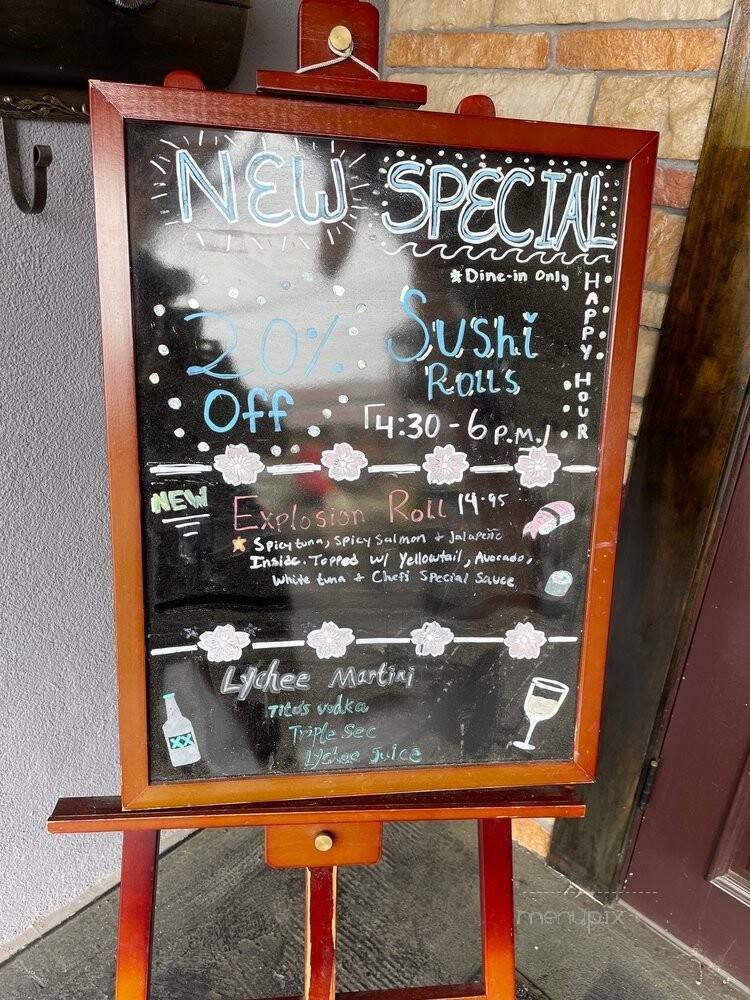 NEW SPECIAL
*Dine-in Only
HAPPY HOUR
20% Off
Sushi Rolls
4:30 - 6 P.M.
NEW
Explosion Roll 14.95
Spicy tuna, Spicy Salmon + Jalapeño
Inside. Topped w/ Yellowtail, Avocado,
White tuna + Chefs Special Sauce
Lychee Martini
Tito's vodka
Triple Sec
Lychee Juice
XX
menupix